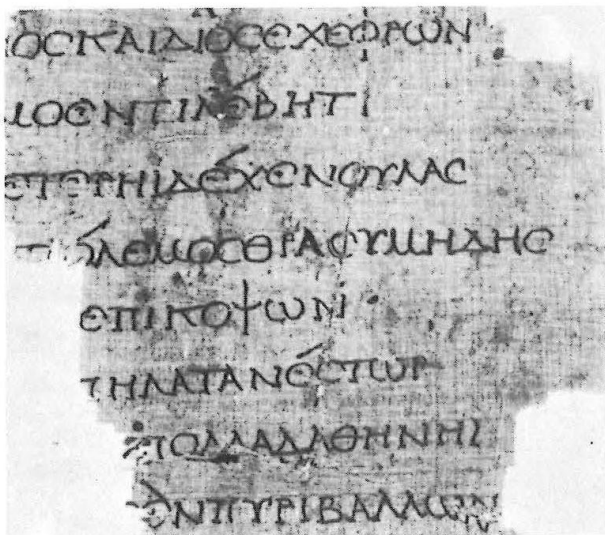 ΟϹΚΑΙΔΙΟϹΕΧΕΦΡΩΝ
ΜΟΕΝΤΙΛΈΒΗΤΙ
ΕΤΕΡΗΙΔΈΧΕΝΟΥΛΑϹ
ΤΌΛΕΜΟϹΘΡΑϹΥΜΗΔΗϹ
ΕΠΙΚΟΨΩΝ·
ΤΗΛΑΤΑΝΈϹΤΩΡ
ΠΟΛΛΑΔΑΘΗΝΗΙ
ΕΝΠΥΡΙΒΑΛΛΩΝ